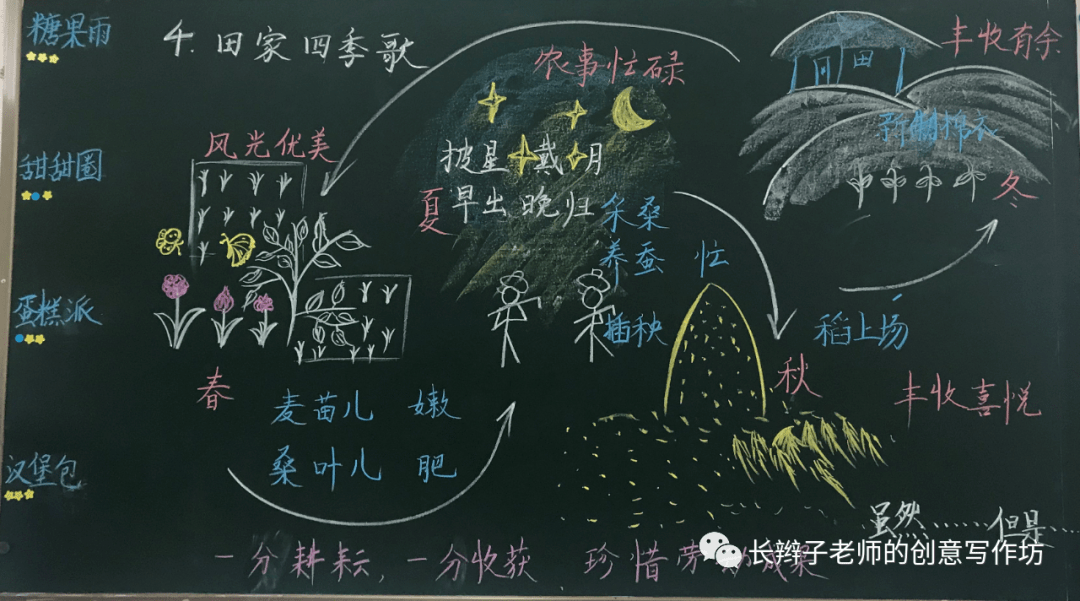 糖果雨
甜甜圈
蛋糕派
汉堡包
4. 田家四季歌
农事忙碌
丰收有余
风光优美
披星戴月
早出晚归
夏
采桑
养蚕 忙
插秧
冬
稻上场
秋
丰收喜悦
春
麦苗儿 嫩
桑叶儿 肥
虽然……但是
一分耕耘，一分收获 珍惜劳动成果
长辫子老师的创意写作坊